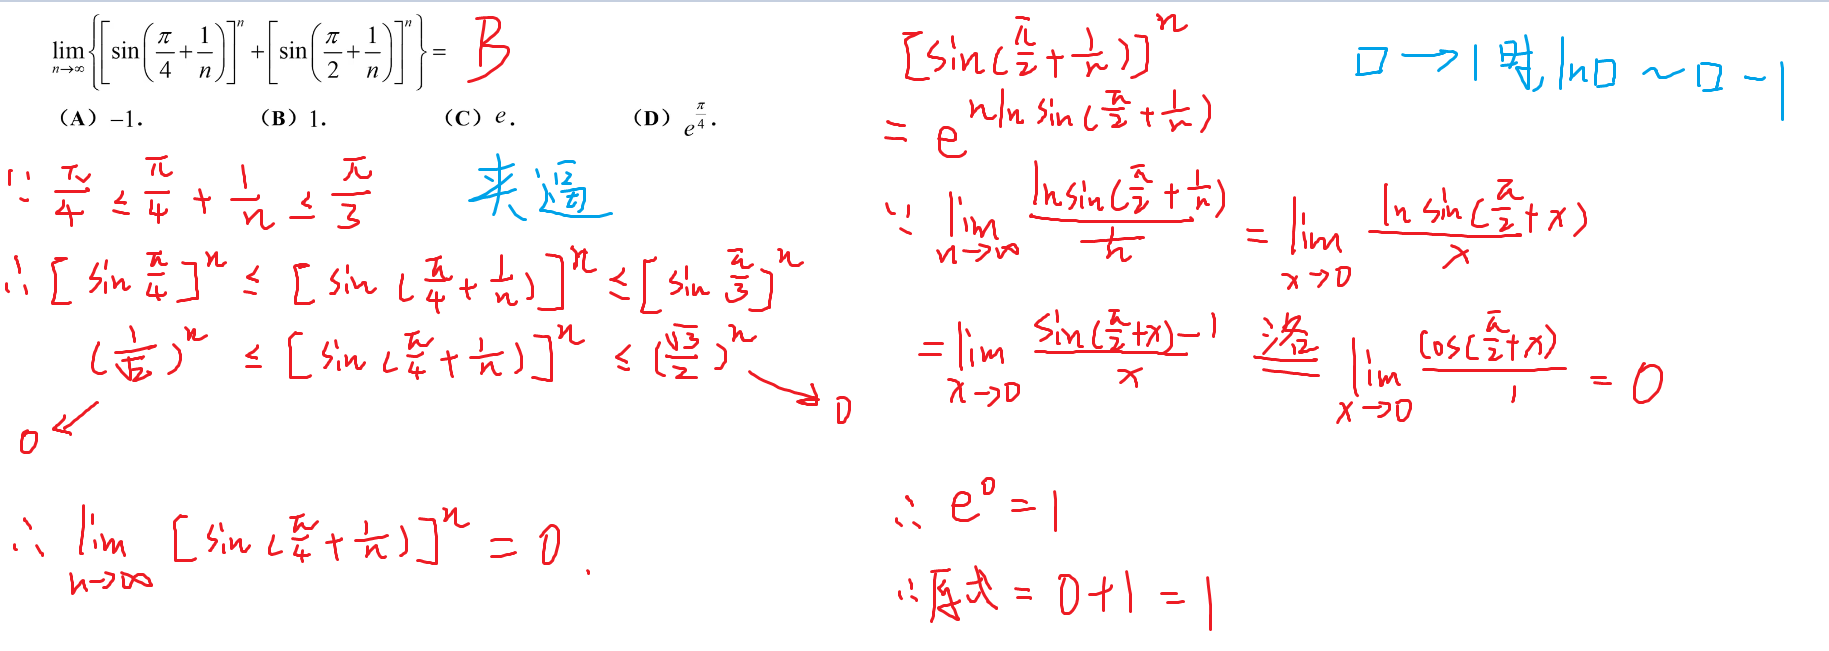 lim_{n→∞} {[sin(π/4 + 1/n)]^n + [sin(π/2 + 1/n)]^n} = B
(A) -1. (B) 1. (C) e. (D) e^{π/4}.
∵ π/4 ≤ π/4 + 1/n ≤ π/3 夹逼
∴ [sin π/4]^n ≤ [sin(π/4 + 1/n)]^n ≤ [sin π/3]^n
(1/√2)^n ≤ [sin(π/4 + 1/n)]^n ≤ (√3/2)^n
0 ↙ ↘ 0
∴ lim_{n→∞} [sin(π/4 + 1/n)]^n = 0.
[sin(π/2 + 1/n)]^n
□→1时, ln□ ~ □-1
= e^{n ln sin(π/2 + 1/n)}
∵ lim_{n→∞} ln sin(π/2 + 1/n) / (1/n) = lim_{x→0} ln sin(π/2 + x) / x
= lim_{x→0} (sin(π/2 + x) - 1) / x 洛 = lim_{x→0} cos(π/2 + x) / 1 = 0
∴ e^0 = 1
∴ 原式 = 0+1 = 1